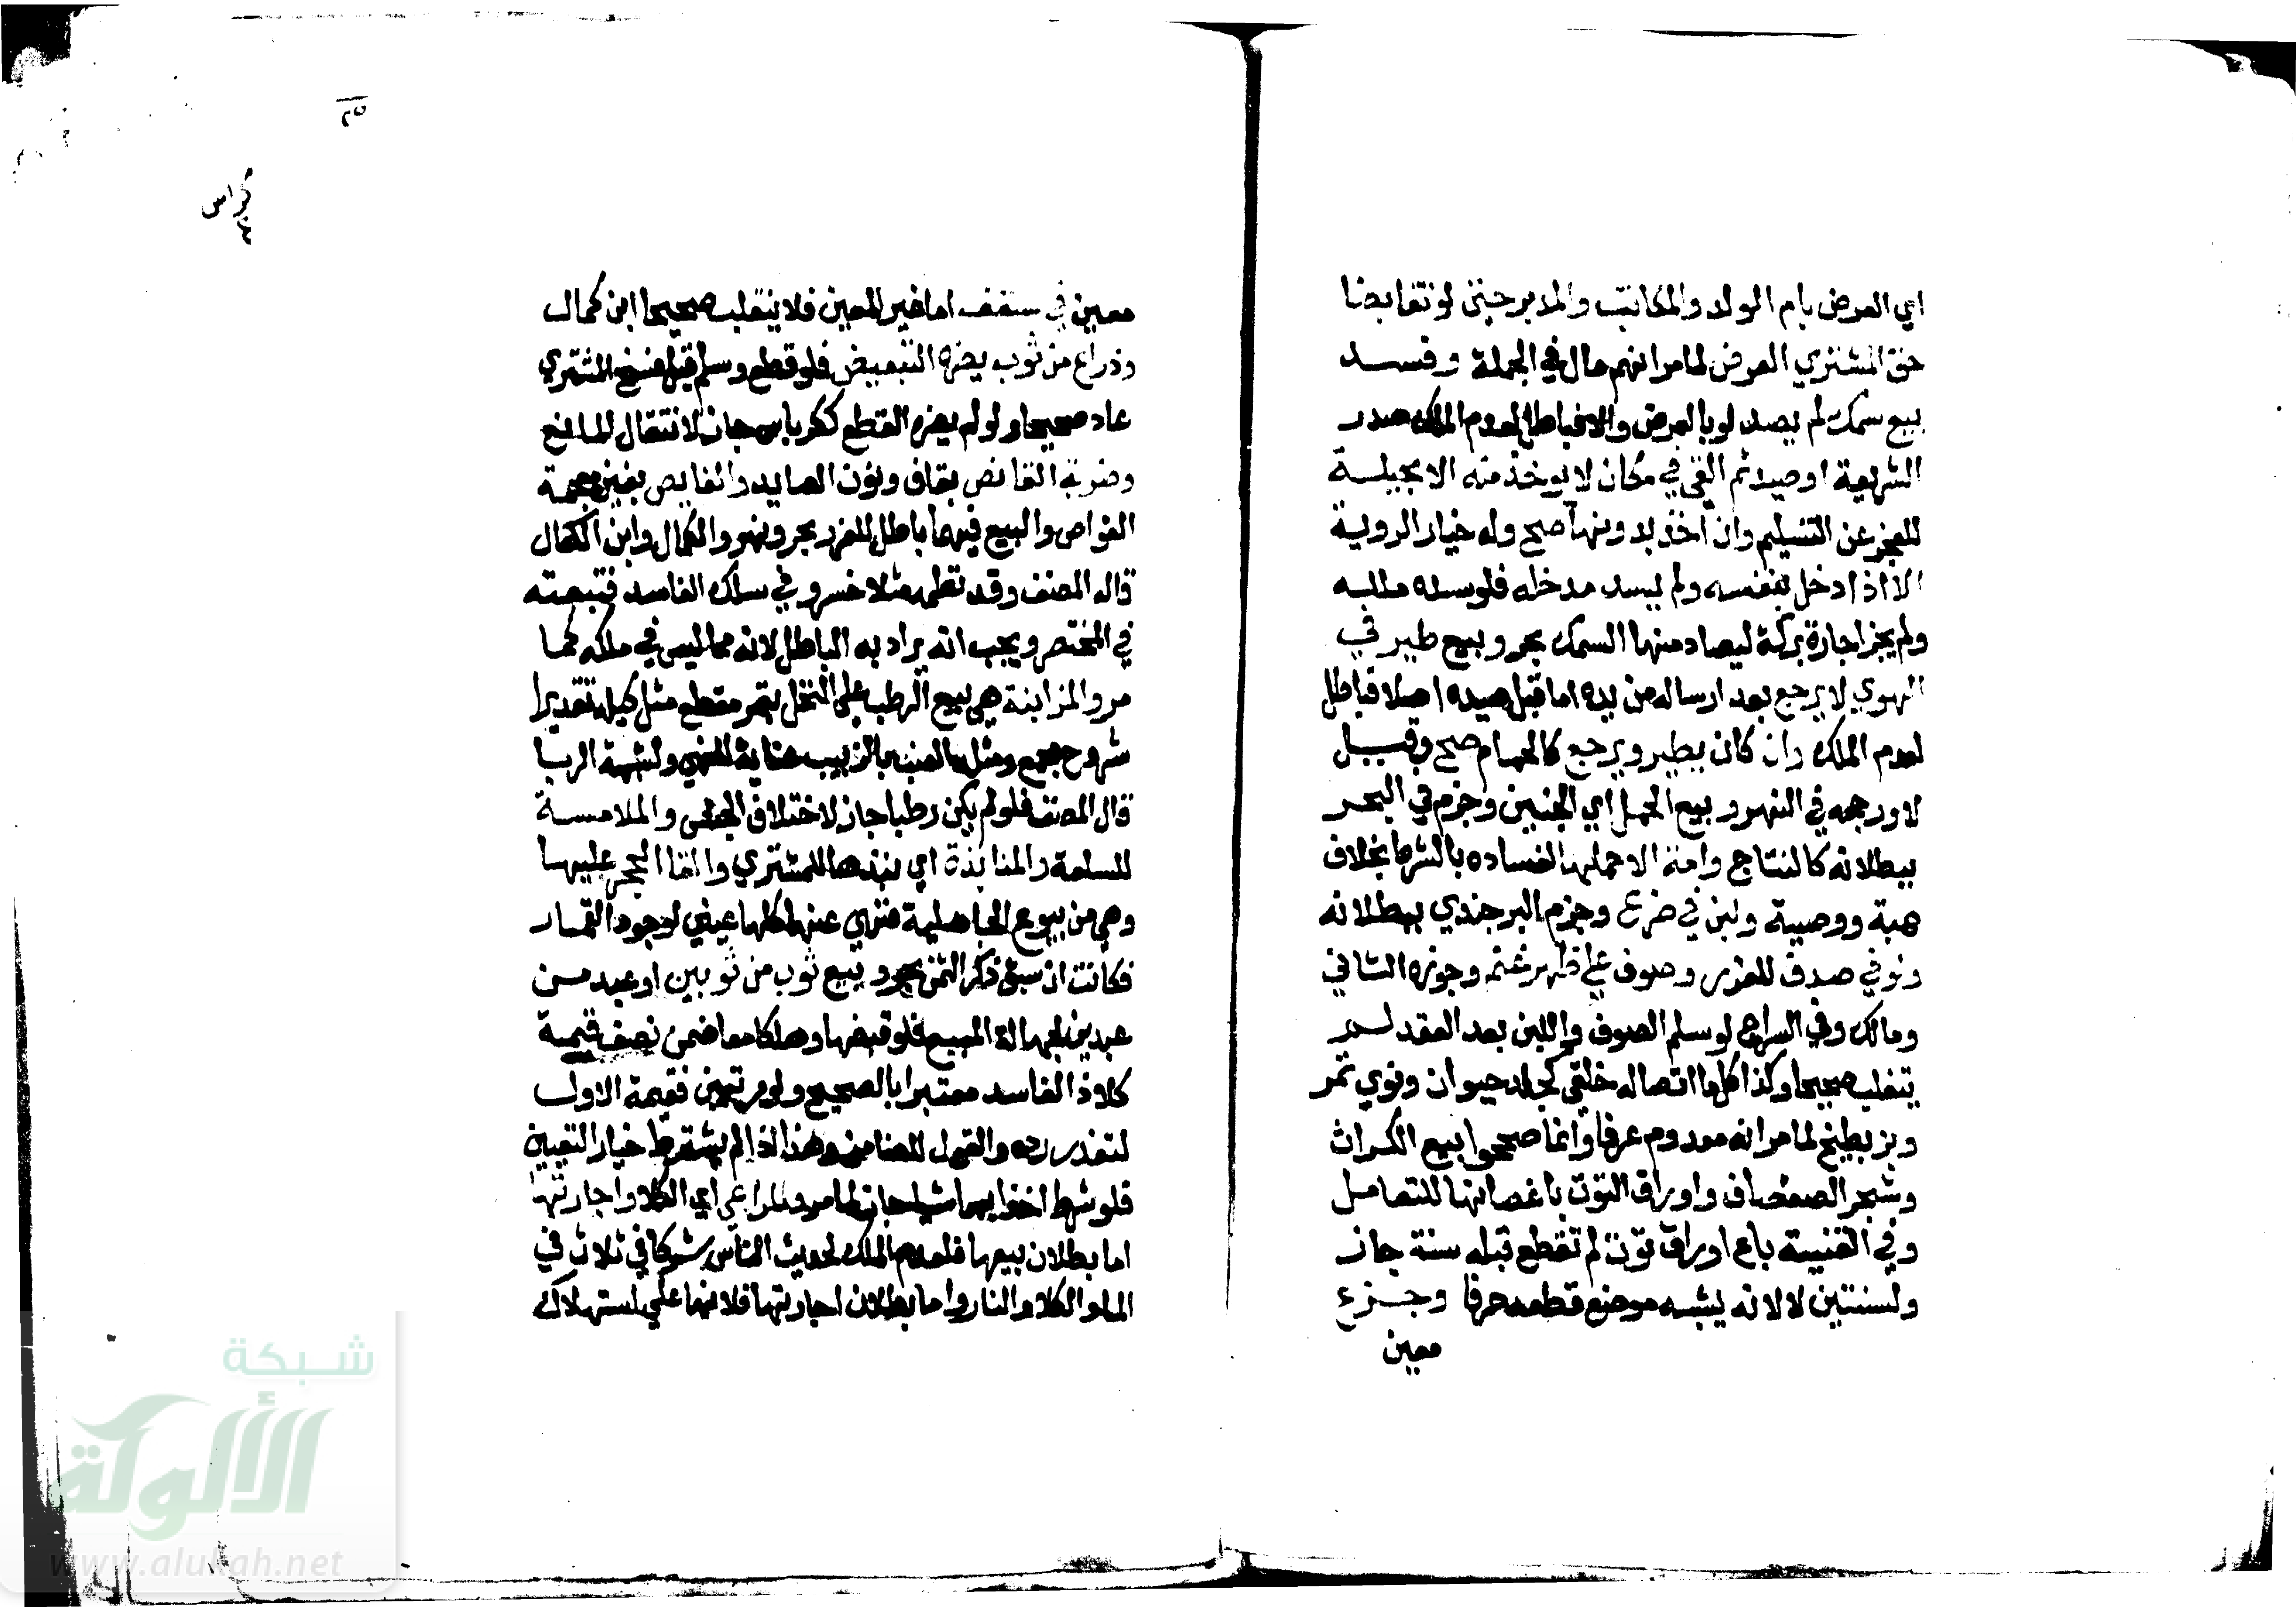 اي العرض بام الولد والمكاتب والمدبر حتى لو تقابضا
حق المشتري العرض لما مر انهم مال في الجملة وفسد
بيع سمك لم يصد لو بالعرض والا فباطل لعدم الملك صدر
الشريعة او صيد ثم القي في مكان لا يوخذ منه الا بحيلة
للعجز عن التسليم وان اخذ بدونها صح وله خيار الروية
الا اذا دخل بنفسه ولم يسد مدخله فلو سده ملكه
ولم يجز اجارة بركة ليصاد منها السمك بحر وبيع طير في
الهوي لا يرجع بعد ارساله من يده اما قبل صيده اصلا فباطل
لعدم الملك وان كان يطير ويرجع كالحمام صح وقيل
لا ورجحه في النهر وبيع الحمل اي الجنين وجزم في البحر
ببطلانه كالنتاج وامة الا حملها لفساده بالشرط بخلاف
هبة ووصية ولبن في ضرع وجزم البرجندي ببطلانه
ولولو في صدف للغرر وصوف على ظهر غنم وجوزه الثاني
ومالك وفي السراج لو سلم الصوف واللبن بعد العقد لم
ينقلب صحيحا وكذا كل ما اتصاله خلقي كجلد حيوان ونوي تمر
وبز بطيخ لما مر انه معدوم عرفا وانما صححوا بيع الكراث
وشجر الصفصاف واوراق التوت باغصانها للتعامل
وفي القنية باع اوراق توت لم تقطع قبله سنة جاز
ولسنتين لا لانه يشبه موضع قطعه عرفا وجذع
معين
٢٥
كراس
معين في سقف اما غير المعين فلا ينقلب صحيحا ابن كمال
وذراع من ثوب يضره التبعيض فلو قطع وسلم قبل فسخ المشتري
عاد صحيحا ولو لم يضره القطع ككرباس جاز لانتقال المانع
وضربة القانص بقاف ونون الصايد والغايص بغين معجمة
الغواص والبيع فيهما باطل للغرر بحر ونهر والكمال وابن الكمال
قاله المصنف وقد نظمه منلا خسرو في سلك الفاسد فتبعته
في المختصر ويجب انه يراد به الباطل لانه مما ليس في ملكه كما
مر والمزابنة هي بيع الرطب على النخل بتمر مقطع مثل كيله تقديرا
شروح مجمع ومثله العنب بالزبيب عناية للنهي ولشبهة الربا
قال المصنف فلو لم يكن رطبا جاز لاختلاف الجنس والملامسة
للسلعة والمنابذة اي نبذها للمشتري والقا الحجر عليها
وهي من بيوع الجاهلية فنهي عنها كلها عيني لوجود القمار
فكانت ان سبق ذكر الثمن بحر وبيع ثوب من ثوبين او عبد من
عبدين لجهالة المبيع فلو قبضها وهلكا معا ضمن نصف قيمة
كل اذ الفاسد معتبر بالصحيح ولو مرتبين فقيمة الاول
لتعذر رده والقول للضامن وهذا اذا لم يشترط خيار التعيين
فلو شرط اخذ ايهما شا جاز لما مر والمراعي اي الكلا واجارتها
اما بطلان بيعها فلعدم الملك لحديث الناس شركا في ثلاث في
الما والكلا والنار واما بطلان اجارتها فلانها على استهلاك
شبكة
الألوكة
www.alukah.net